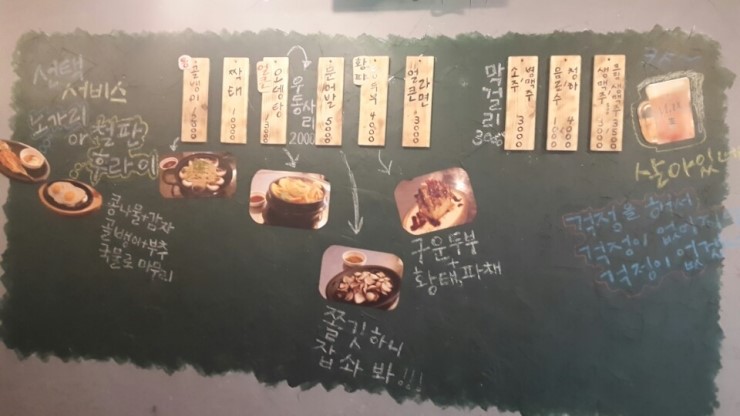 선택
서비스
노가리
아
철판
후라이
콩나물+감자
골뱅이+부추
국물로 마무리
골뱅이
짝태
오뎅탕
우동사리
2000
문어발 5000
황태
4000
얼큰라면
3000
막걸리
3000
소주
병맥주
3000
음료수
1000
청하
4000
생맥주
3000
흑생맥주 3500
캬~
살아있네
걱정을 해서
걱정이 없어지면
걱정이 없겠네
구운두부
+
황태,파채
쫄깃하니
잡솨봐!!!